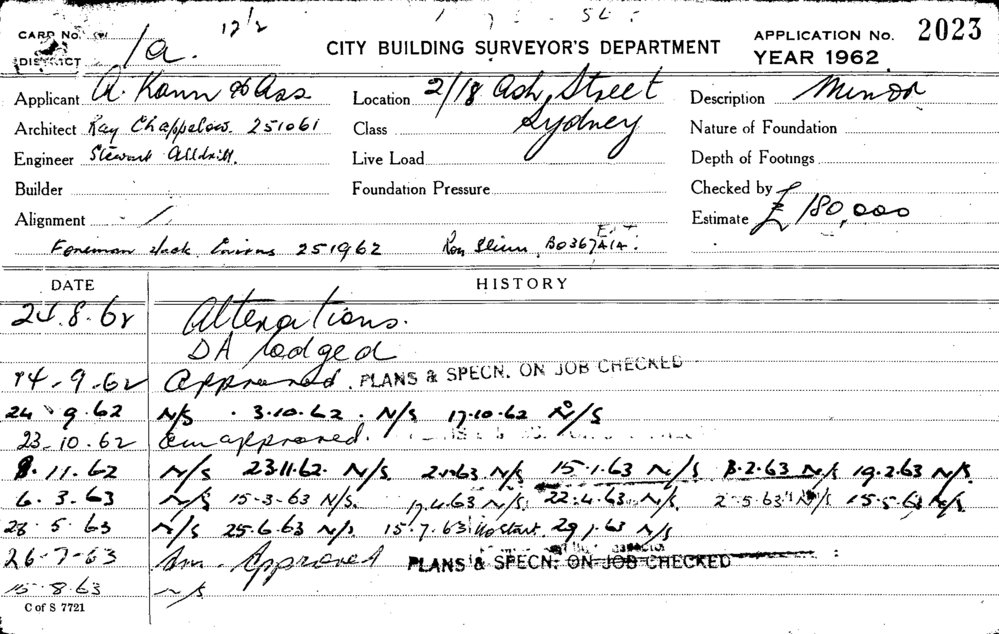 12 1/2
CARD NO.
DISTRICT 1a.
CITY BUILDING SURVEYOR'S DEPARTMENT
APPLICATION No. 2023
YEAR 1962
Applicant A. Kann & Ass
Location 2/18 Ash Street
Sydney
Description Minor
Architect Ray Chappelow. 251061
Class
Nature of Foundation
Engineer Stewart
Live Load
Depth of Footings
Builder
Foundation Pressure
Checked by
Alignment
Estimate £180,000
Foreman Jack 251962 B0367
DATE HISTORY
24.8.62 Alterations.
DA lodged
14-9-62 Approved. PLANS & SPECN. ON JOB CHECKED
24.9.62 N/S. 3.10.62. N/S 17.10.62 N/S
23.10.62 approved.
8.11.62 N/S 23.11.62. N/S N/S 15.1.63 N/S 8.2.63 N/S 19.2.63 N/S
6.3.63 N/S 15-3-63 N/S. 22.4.63 N/S 2.5.63 N/S 15.5.63 N/S.
28.5.63 N/S 25.6.63 N/S. 15.7.63 No start. N/S
26-7-63 Am. Approved PLANS & SPECN: ON JOB CHECKED
15.8.63 N/S.
C of S 7721